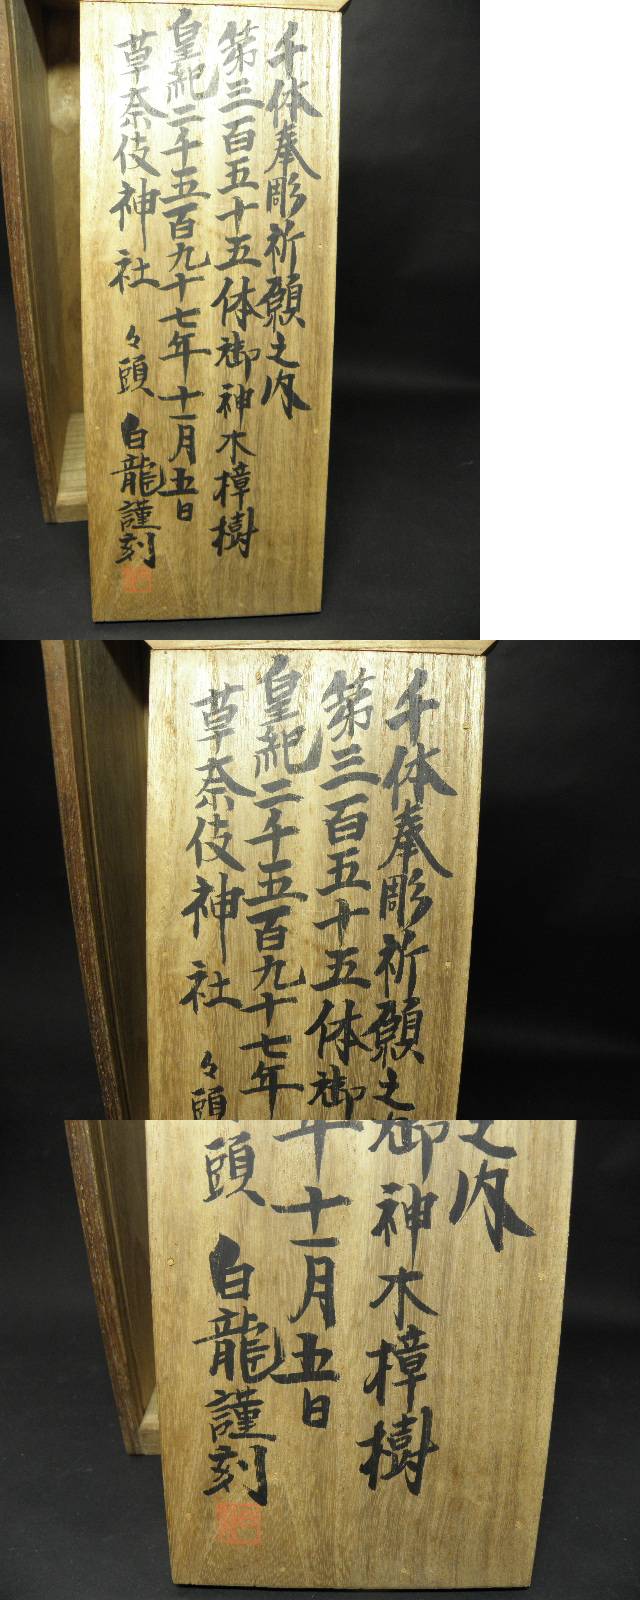 千体奉彫祈願之内
第三百五十五体御神木樟樹
皇紀二千五百九十七年十一月五日
草奈伎神社々頭 白龍謹刻
千体奉彫祈願之
第三百五十五体御
皇紀二千五百九十七年
草奈伎神社々頭
之内
御神木樟樹
年十一月五日
頭 白龍謹刻